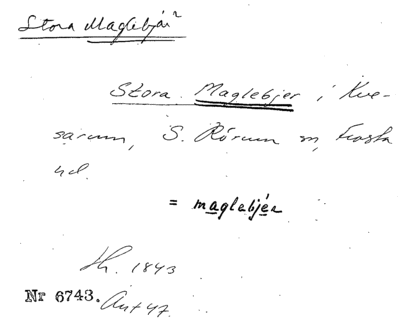 Stora Maglebjär
Stora Maglebjer i Kve-
sarum, S. Rörum sn, Frosta
hd.
= maglebjér
Lh. 1843
Nr 6743. Ant 47.